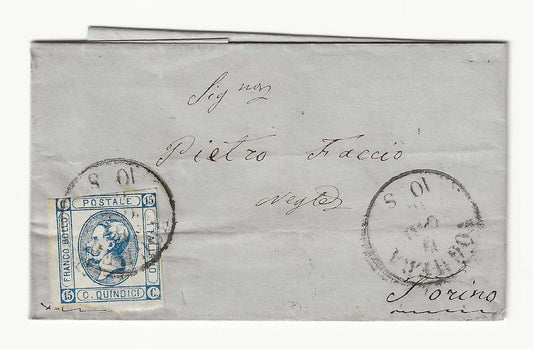 Sig nor
Pietro Faccio
Negte
Torino
FRANCO BOLLO
POSTALE
ITALIANO
C. QUINDICI
15
15
10 S
10 S